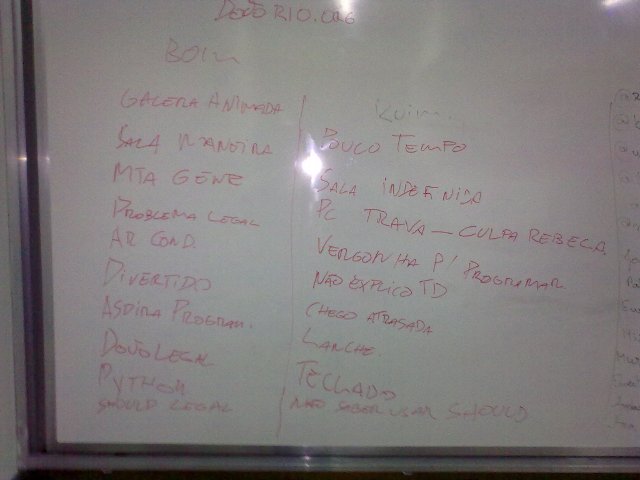 DOJO RIO.ORG
BOIM
GALERA ANIMADA
SALA MANEIRA
MTA GENTE
PROBLEMA LEGAL
AR COND.
DIVERTIDO
ADOIRA PROGRAM.
DOJO LEGAL
PYTHON
SHOULD LEGAL
RUIM
POUCO TEMPO
SALA INDEFINIDA
PC TRAVA — CULPA REBECA
VERGONHA P/ PROGRAMAR
NÃO EXPLICO TD
CHEGO ATRASADA
LANCHE
TECLADO
NÃO SABER USAR SHOULD